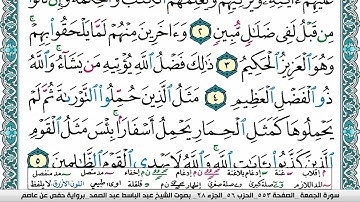 عليهم ءايته ويزكيهم ويعلمهم
مِن قَبْلُ لَفِى ضَلَٰلٍ مُّبِينٍ ٢ وَءَاخَرِينَ مِنْهُمْ لَمَّا يَلْحَقُوا۟ بِهِمْ
وَهُوَ ٱلْعَزِيزُ ٱلْحَكِيمُ ٣ ذَٰلِكَ فَضْلُ ٱللَّهِ يُؤْتِيهِ مَن يَشَآءُ وَٱللَّهُ
ذُو ٱلْفَضْلِ ٱلْعَظِيمِ ٤ مَثَلُ ٱلَّذِينَ حُمِّلُوا۟ ٱلتَّوْرَىٰةَ ثُمَّ لَمْ
يَحْمِلُوهَا كَمَثَلِ ٱلْحِمَارِ يَحْمِلُ أَسْفَارًۢا ۚ بِئْسَ مَثَلُ ٱلْقَوْمِ
ٱلَّذِينَ كَذَّبُوا۟ بِـَٔايَٰتِ ٱللَّهِ ۚ وَٱللَّهُ لَا يَهْدِى ٱلْقَوْمَ ٱلظَّٰلِمِينَ ٥
سورة الجمعة . الصفحة ٥٥٣ الحزب ٥٦ الجزء ٢٨ . بصوت الشيخ عبد الباسط عبد الصمد برواية حفص عن عاصم